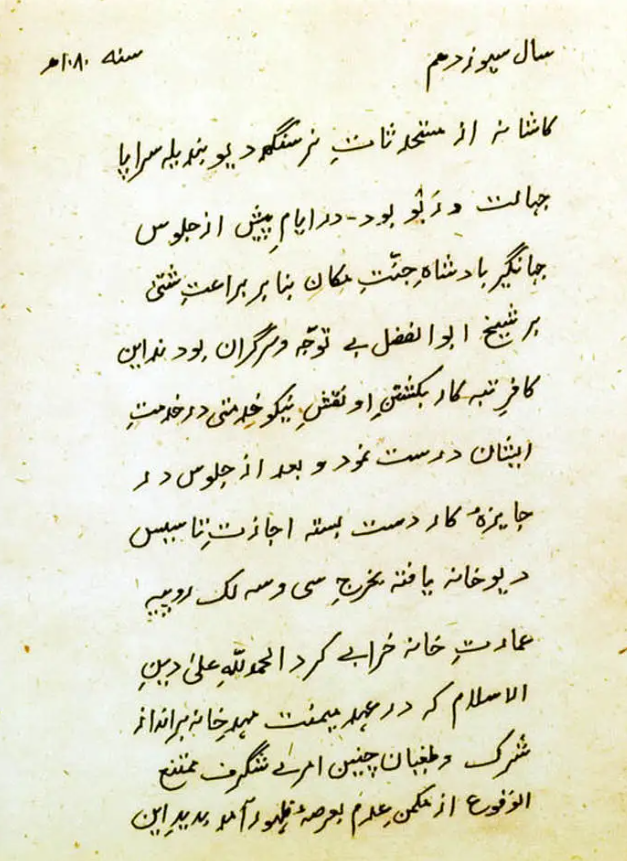 سال سیوزدهم سنه ۱۰۸۰ھ
کاشانه از مستحدثاتِ نرسنگھ دیو بندیله سراپا
جهالت و تربو بود۔ در ایامِ پیش از جلوس
جهانگیر بادشاهِ جنّت مکان بنابر براعتِ شتیٰ
بر شیخ ابوالفضل بے توجّه و سرگران بودند این
کافرِ تبه کار بکشتنِ او نقشِ نیکو خدمتی در خدمتِ
ایشان درست نمود و بعد از جلوس در
جایزهٔ کار دست بسته اجازتِ تاسیس
دیوخانه یافته بخرجِ سی و سه لک روپیه
عمارتِ خانه خرابے کرد الحمد للّهِ علیٰ دینِ
الاسلام که در عهد میمنت مهدِ خانه برانداز
شرک و طغیان چنین امرے شگرف ممتنع
الوقوع از مکمنِ عدم بعرصهٔ ظهور آمد بدیدِ این